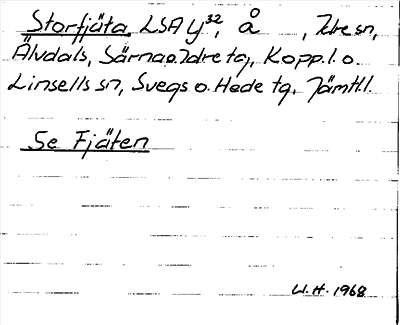 Storfjäta LSA y³², å , Idre sn,
Älvdals, Särna o. Idre tg, Kopp. l. o.
Linsells sn, Svegs o. Hede tg. Jämtl. l.
Se Fjäten
W. H. 1968